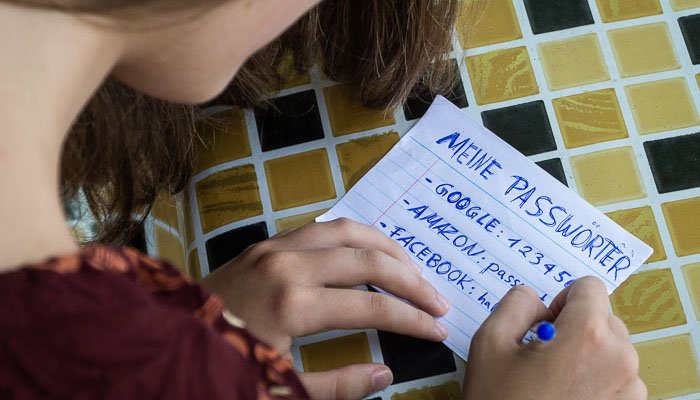 MEINE PASSWÖRTER
- GOOGLE: 123456
- AMAZON:
- FACEBOOK: